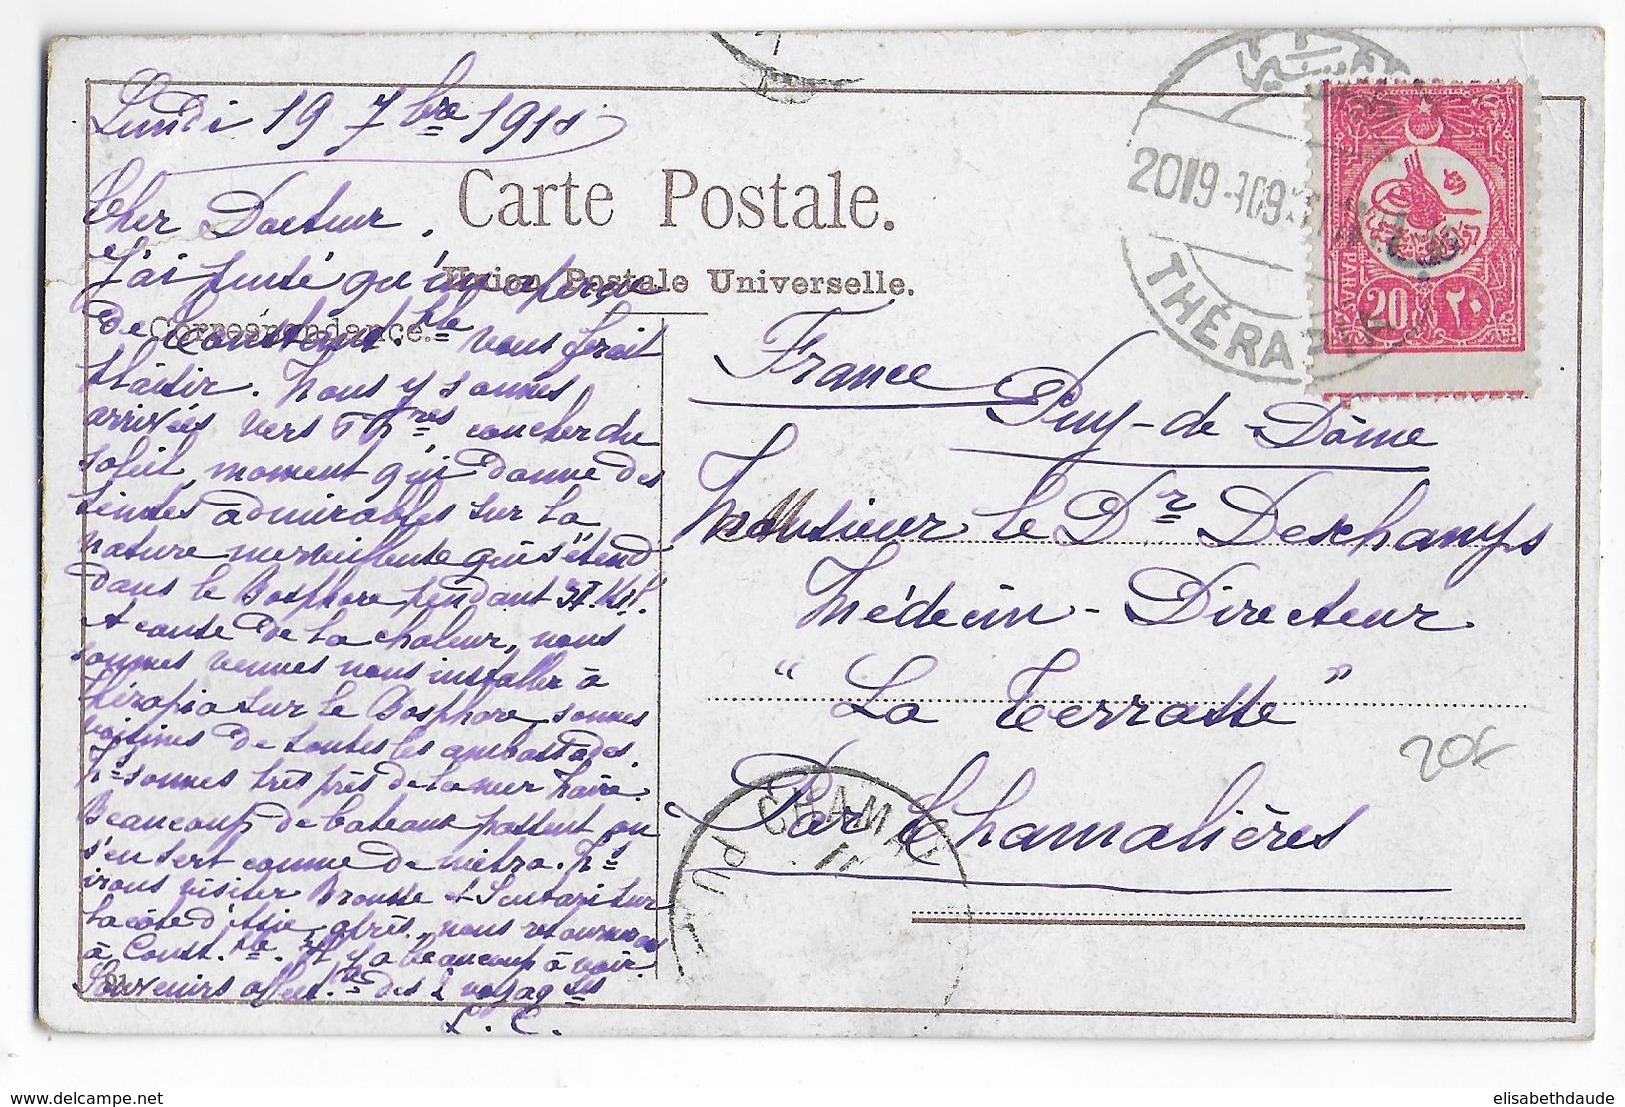 Lundi 19 7bre 1910
Carte Postale.
Union Postale Universelle.
Correspondance.
Cher Docteur,
J'ai pensé qu'un aperçu
de Constant.ple vous ferait
plaisir. Nous y sommes
arrivés vers 7 hres, coucher du
soleil, moment qui donne des
teintes admirables sur la
nature merveilleuse qui s'étend
dans le Bosphore pendant
A cause de la chaleur, nous
sommes venues nous installer à
Thérapia sur le Bosphore, sommes
voisines de toutes les ambassades.
Ns sommes très près de la mer Noire.
Beaucoup de bateaux passent on
s'en sert comme de métro. Ns
irons visiter Brousse et Scutari sur
la côte d'Asie, après, nous retournerons
à Const.ple. Il y a beaucoup à voir.
Souvenirs affect. des 2 voyag.ses
L. C.
91
France
Puy-de-Dôme
Monsieur le Dr Deschamps
Médecin-Directeur
"La Terrasse"
Par Chamalières
20€
THÉRAPIA
20 PARAS ٢٠
CHAMAL
PUY
elisabethdaude